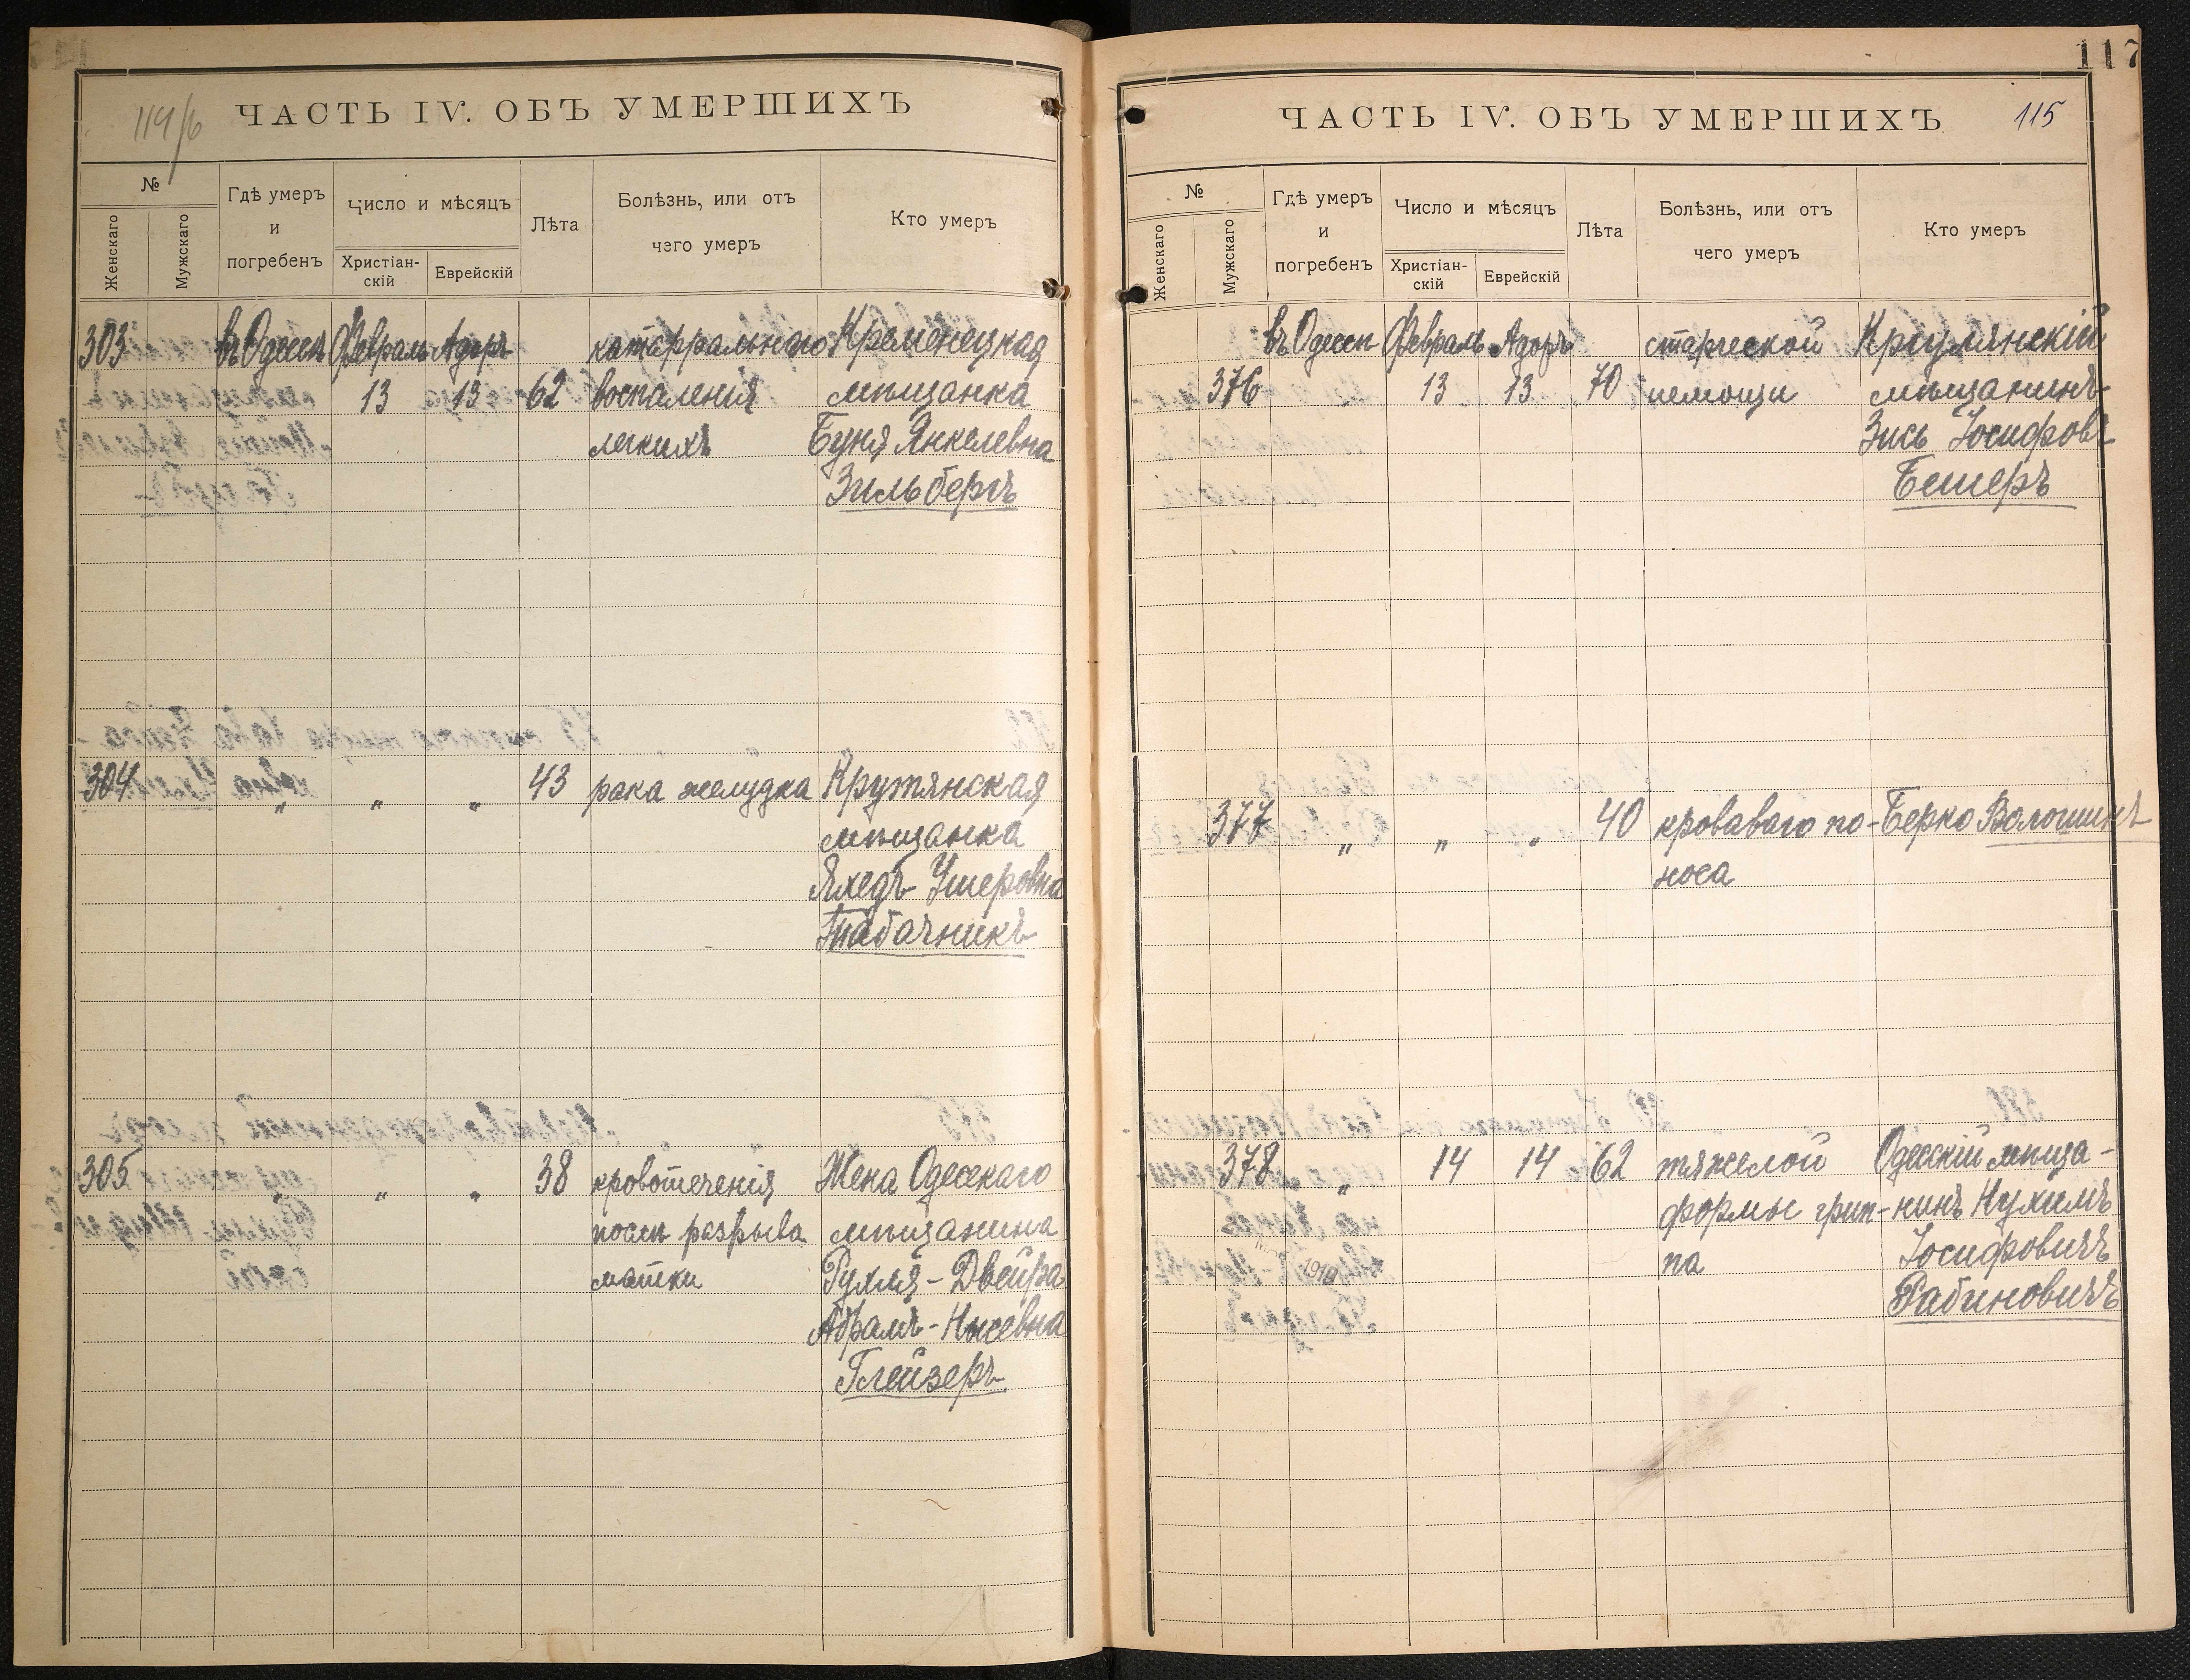 114/б
ЧАСТЬ IV. ОБЪ УМЕРШИХЪ
№
Женскаго
Мужскаго
Гдѣ умеръ
и
погребенъ
Число и мѣсяцъ
Христіан-
скій
Еврейскій
Лѣта
Болѣзнь, или отъ
чего умеръ
Кто умеръ
303 въ Одессѣ Февраль Адоръ катарральнаго Кременецкая
13 13 62 воспаленія мѣщанка
легкихъ Буня Янкелевна
Зильбергъ
304 „ „ „ 43 рака желудка Крутянская
мѣщанка
Яхедъ Ушеровна
Табачникъ
305 „ „ „ 38 кровотеченія Жена Одесскаго
послѣ разрыва мѣщанина
матки Рухля-Двейра
Абрамъ-Нысевна
Глейзеръ
117
ЧАСТЬ IV. ОБЪ УМЕРШИХЪ
115
№
Женскаго
Мужскаго
Гдѣ умеръ
и
погребенъ
Число и мѣсяцъ
Христіан-
скій
Еврейскій
Лѣта
Болѣзнь, или отъ
чего умеръ
Кто умеръ
въ Одессѣ Февраль Адоръ старческой
376 13 13 70 немощи мѣщанинъ
Зись Іосифовъ
Бешеръ
377 „ „ „ 40 кроваваго по- Берко Волошинъ
носа
378 „ 14 14 62 тяжелой Одесскій мѣща-
формы грип- нинъ Нухимъ
па Іосифовичъ
Рабиновичъ
1919